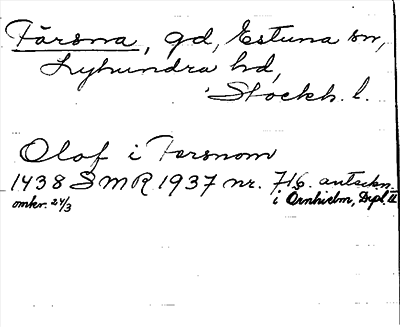 Färsna, gd, Estuna sn,
Lyhundra hd,
Stockh. l.
Olof i Fersnom
1438 SMR 1937 nr. 716. anteckn.
omkr. 24/3 i Örnhielm, Dipl. II